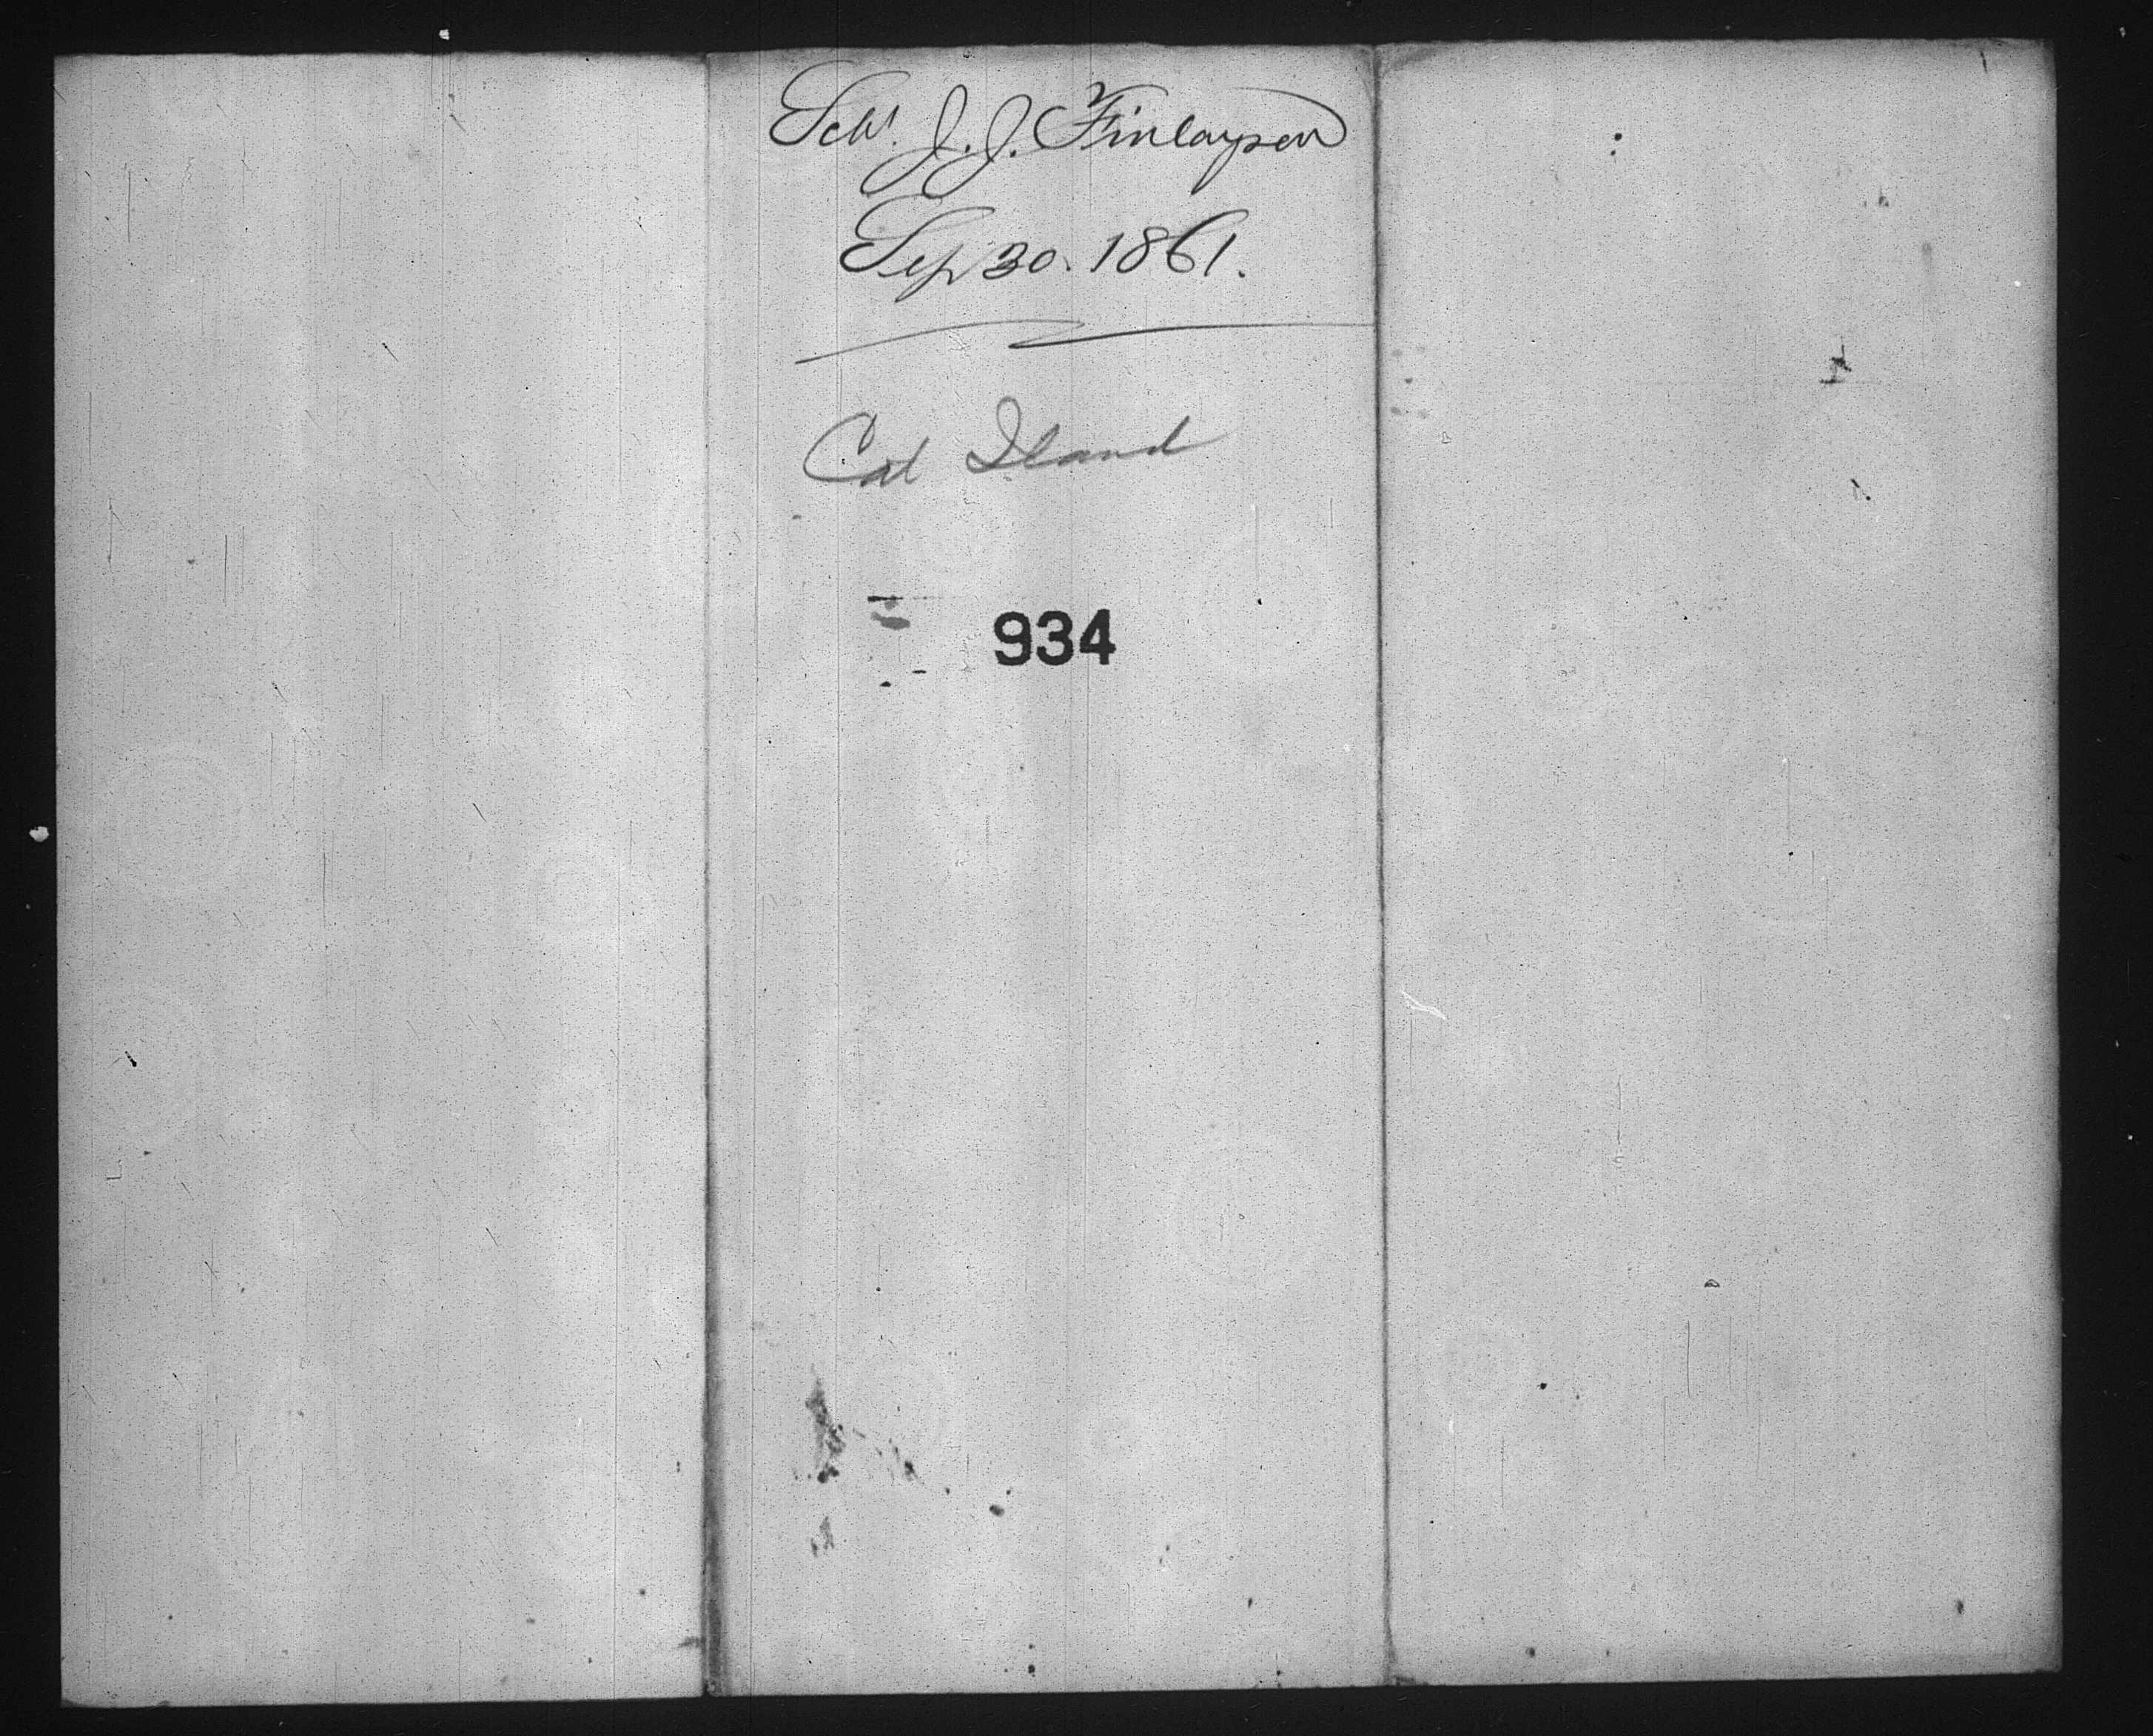 Schr. J. J. Finlayson
Sep 30. 1861.
Cat Iland
934